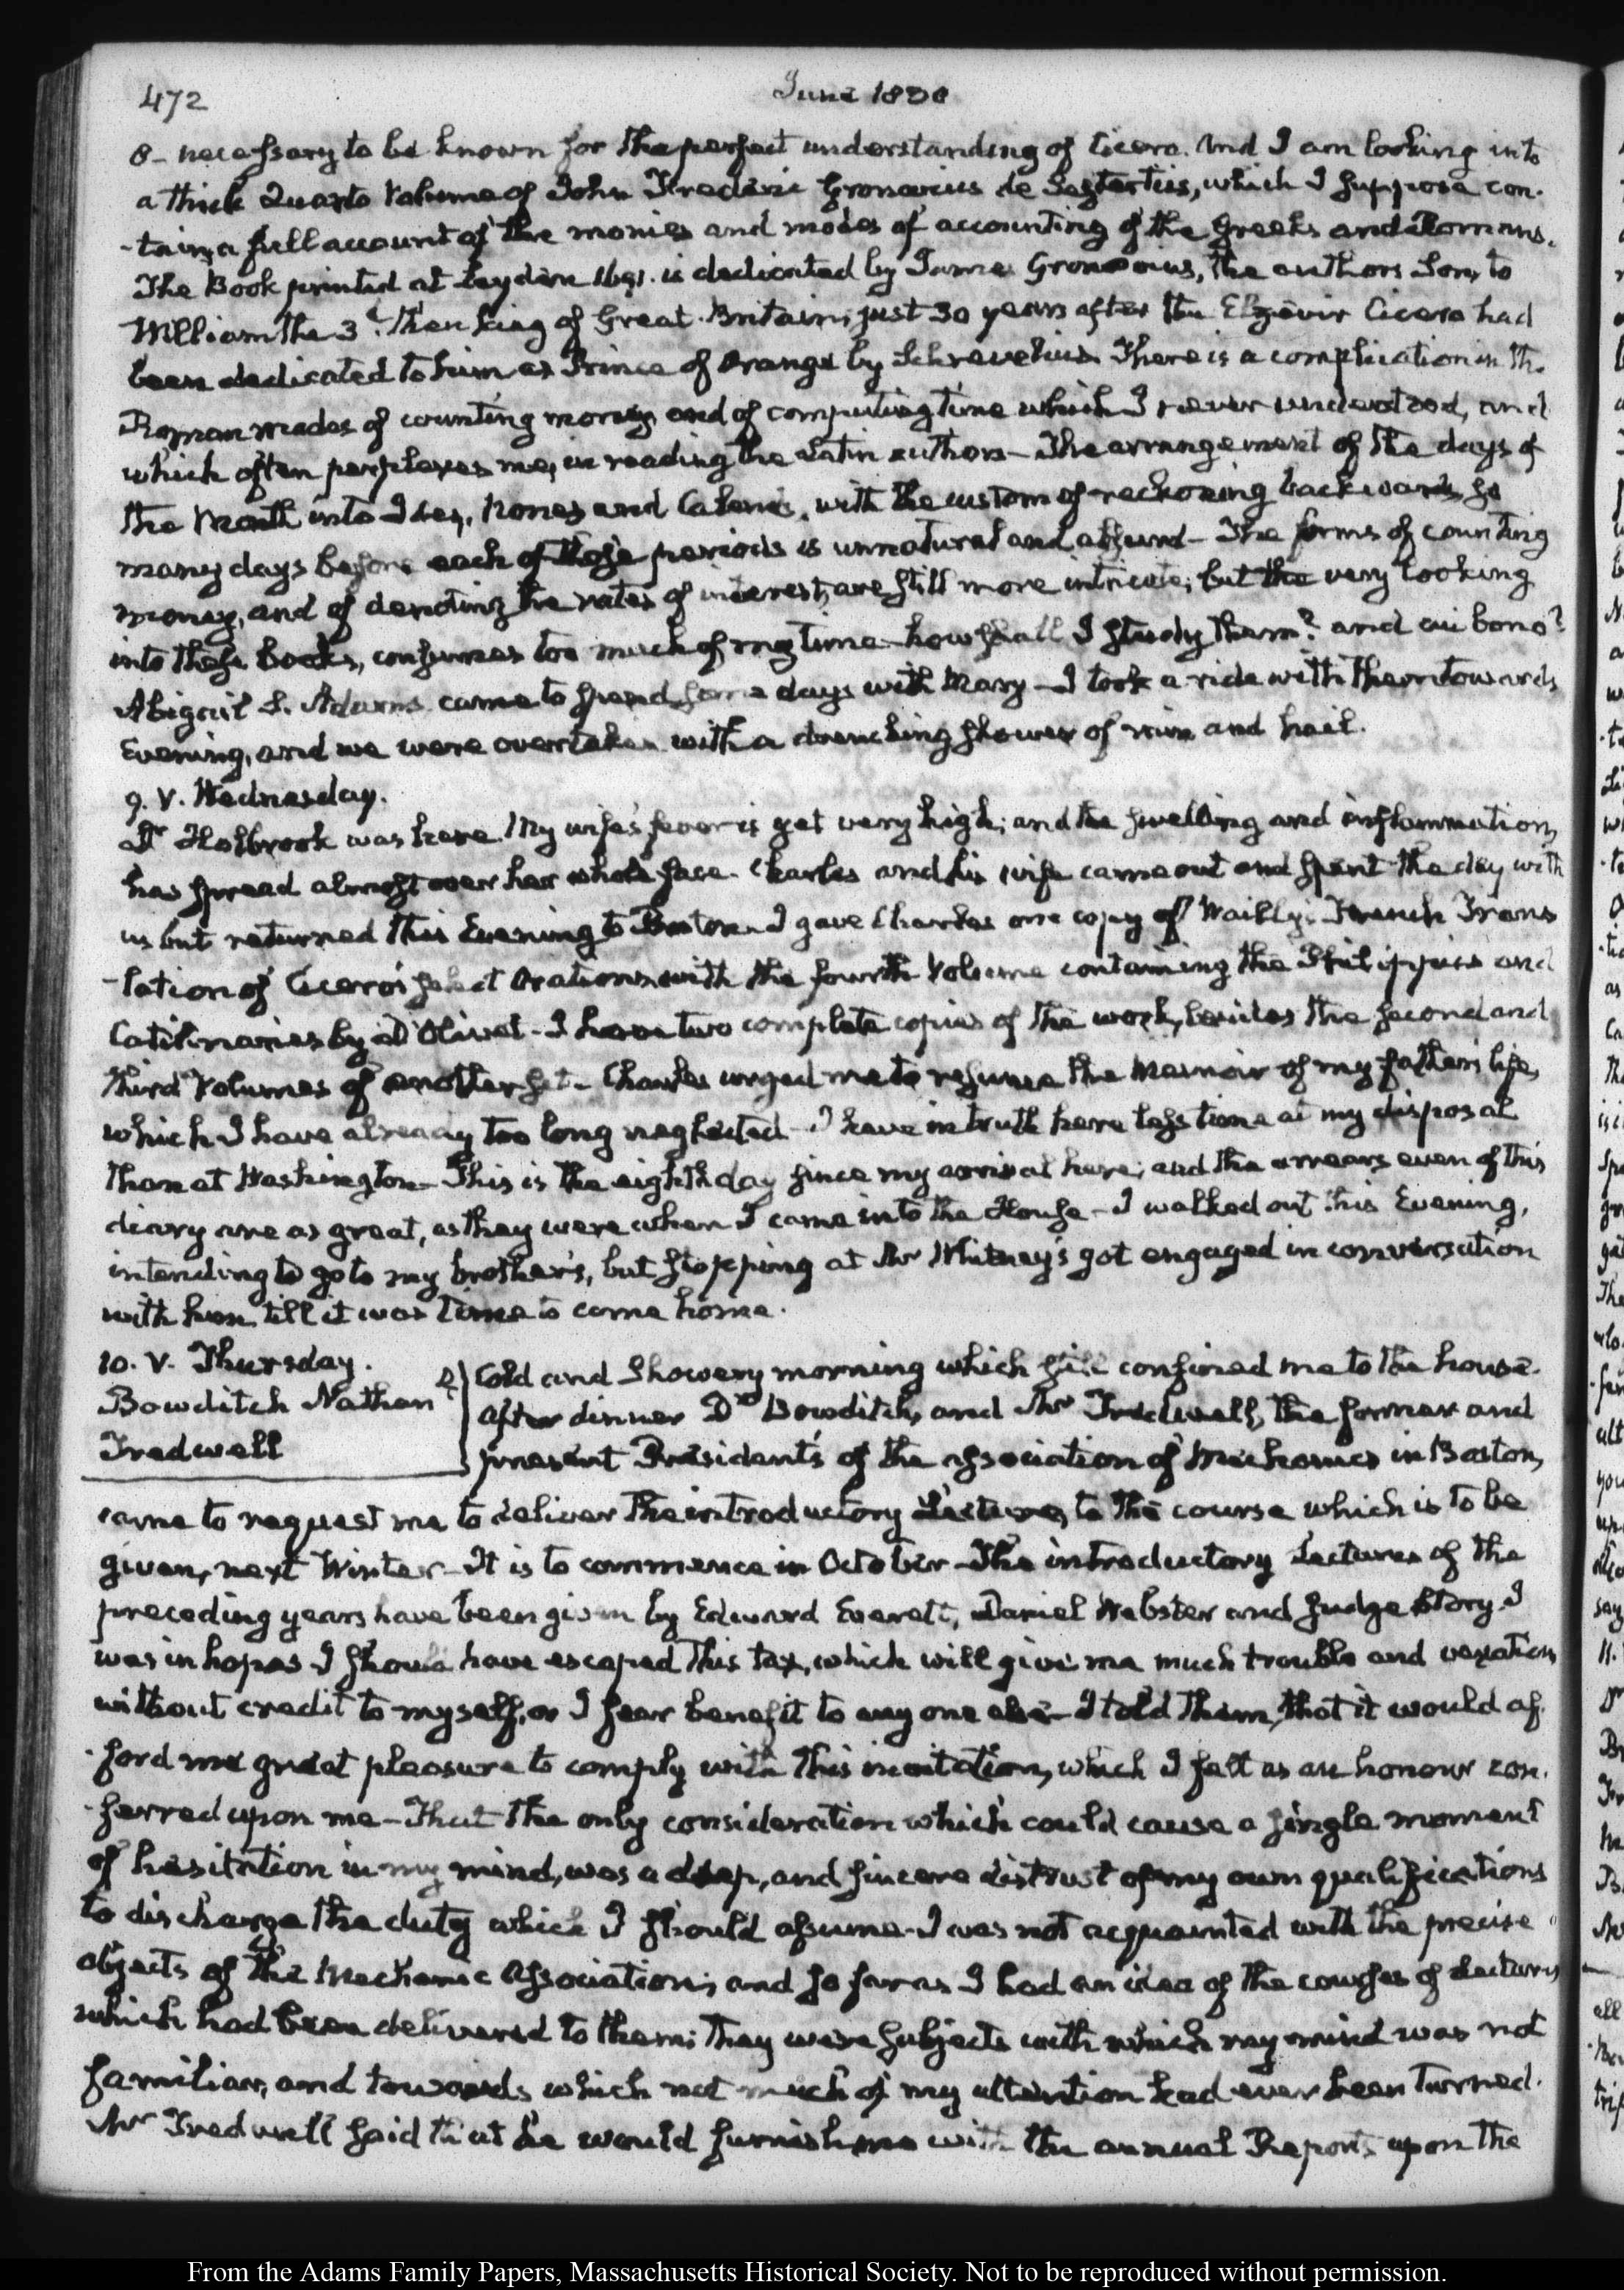 472
June 1830
8- necessary to be known for the perfect understanding of Cicero. And I am looking into
a thick Quarto Volume of John Frederic Gronovius de Sestertiis, which I suppose con-
-tains a full account of the monies and modes of accounting of the Greeks and Romans.
The Book printed at Leyden 1691. is dedicated by James Gronovius, the authors Son, to
William the 3d. then king of Great-Britain, just 30 years after the Elzevir Cicero had
been dedicated to him as Prince of Orange by Schrevelius. There is a complication in the
Roman modes of counting money, and of computing time which I never understood, and
which often perplexes me, in reading the Latin authors- The arrangement of the days of
the Month into Ides, Nones and Calends, with the custom of reckoning backwards so
many days before each of those periods is unnatural and absurd- The forms of counting
money, and of denoting the rates of interest, are still more intricate; but the very looking
into these Books, consumes too much of my time- how shall I study them? and cui bono?
Abigail S. Adams came to spend some days with Mary- I took a ride with them towards
Evening, and we were overtaken with a drenching shower of rain and hail.
9. V. Wednesday.
Dr Holbrook was here. My wife's fever is yet very high; and the swelling and inflammation,
has spread almost over her whole face. Charles and his wife came out and spent the day with
us but returned this Evening to Boston. I gave Charles one copy of Wailly's French Trans
-lation of Cicero's select Orations, with the fourth Volume containing the Philippics and
Catilinaries by D'Olivet- I have two complete copies of the work, besides the second and
third Volumes of another set- Charles urged me to resume the Memoir of my father's life,
which I have already too long neglected- I have in truth here less time at my disposal
than at Washington- This is the eighth day since my arrival here, and the arrears even of this
diary are as great, as they were when I came into the House- I walked out this Evening,
intending to go to my brother's, but stopping at Mr Whitney's got engaged in conversation
with him till it was time to come home.
10. V. Thursday.
Bowditch Nathan Dr
Tredwell
Cold and Showery morning which still confined me to the house.
After dinner Dr Bowditch, and Mr Tredwell, the former and
present Presidents of the association of Mechanics in Boston,
came to request me to deliver the introductory Lecture, to the course which is to be
given, next Winter- It is to commence in October- The introductory Lectures of the
preceding years have been given by Edward Everett, Daniel Webster and Judge Story. I
was in hopes I should have escaped this tax, which will give me much trouble and vexation
without credit to myself, or I fear benefit to any one else- I told them, that it would af-
-ford me great pleasure to comply with this invitation, which I felt as an honour con-
-ferred upon me- That the only consideration which could cause a single moment
of hesitation in my mind, was a deep, and sincere distrust of my own qualifications
to discharge the duty which I should assume- I was not acquainted with the precise
objects of the Mechanic Association; and so far as I had an idea of the courses of Lectures
which had been delivered to them; they were subjects with which my mind was not
familiar, and towards which not much of my attention had ever been turned.
Mr Tredwell said that he would furnish me with the annual Reports upon the
From the Adams Family Papers, Massachusetts Historical Society. Not to be reproduced without permission.